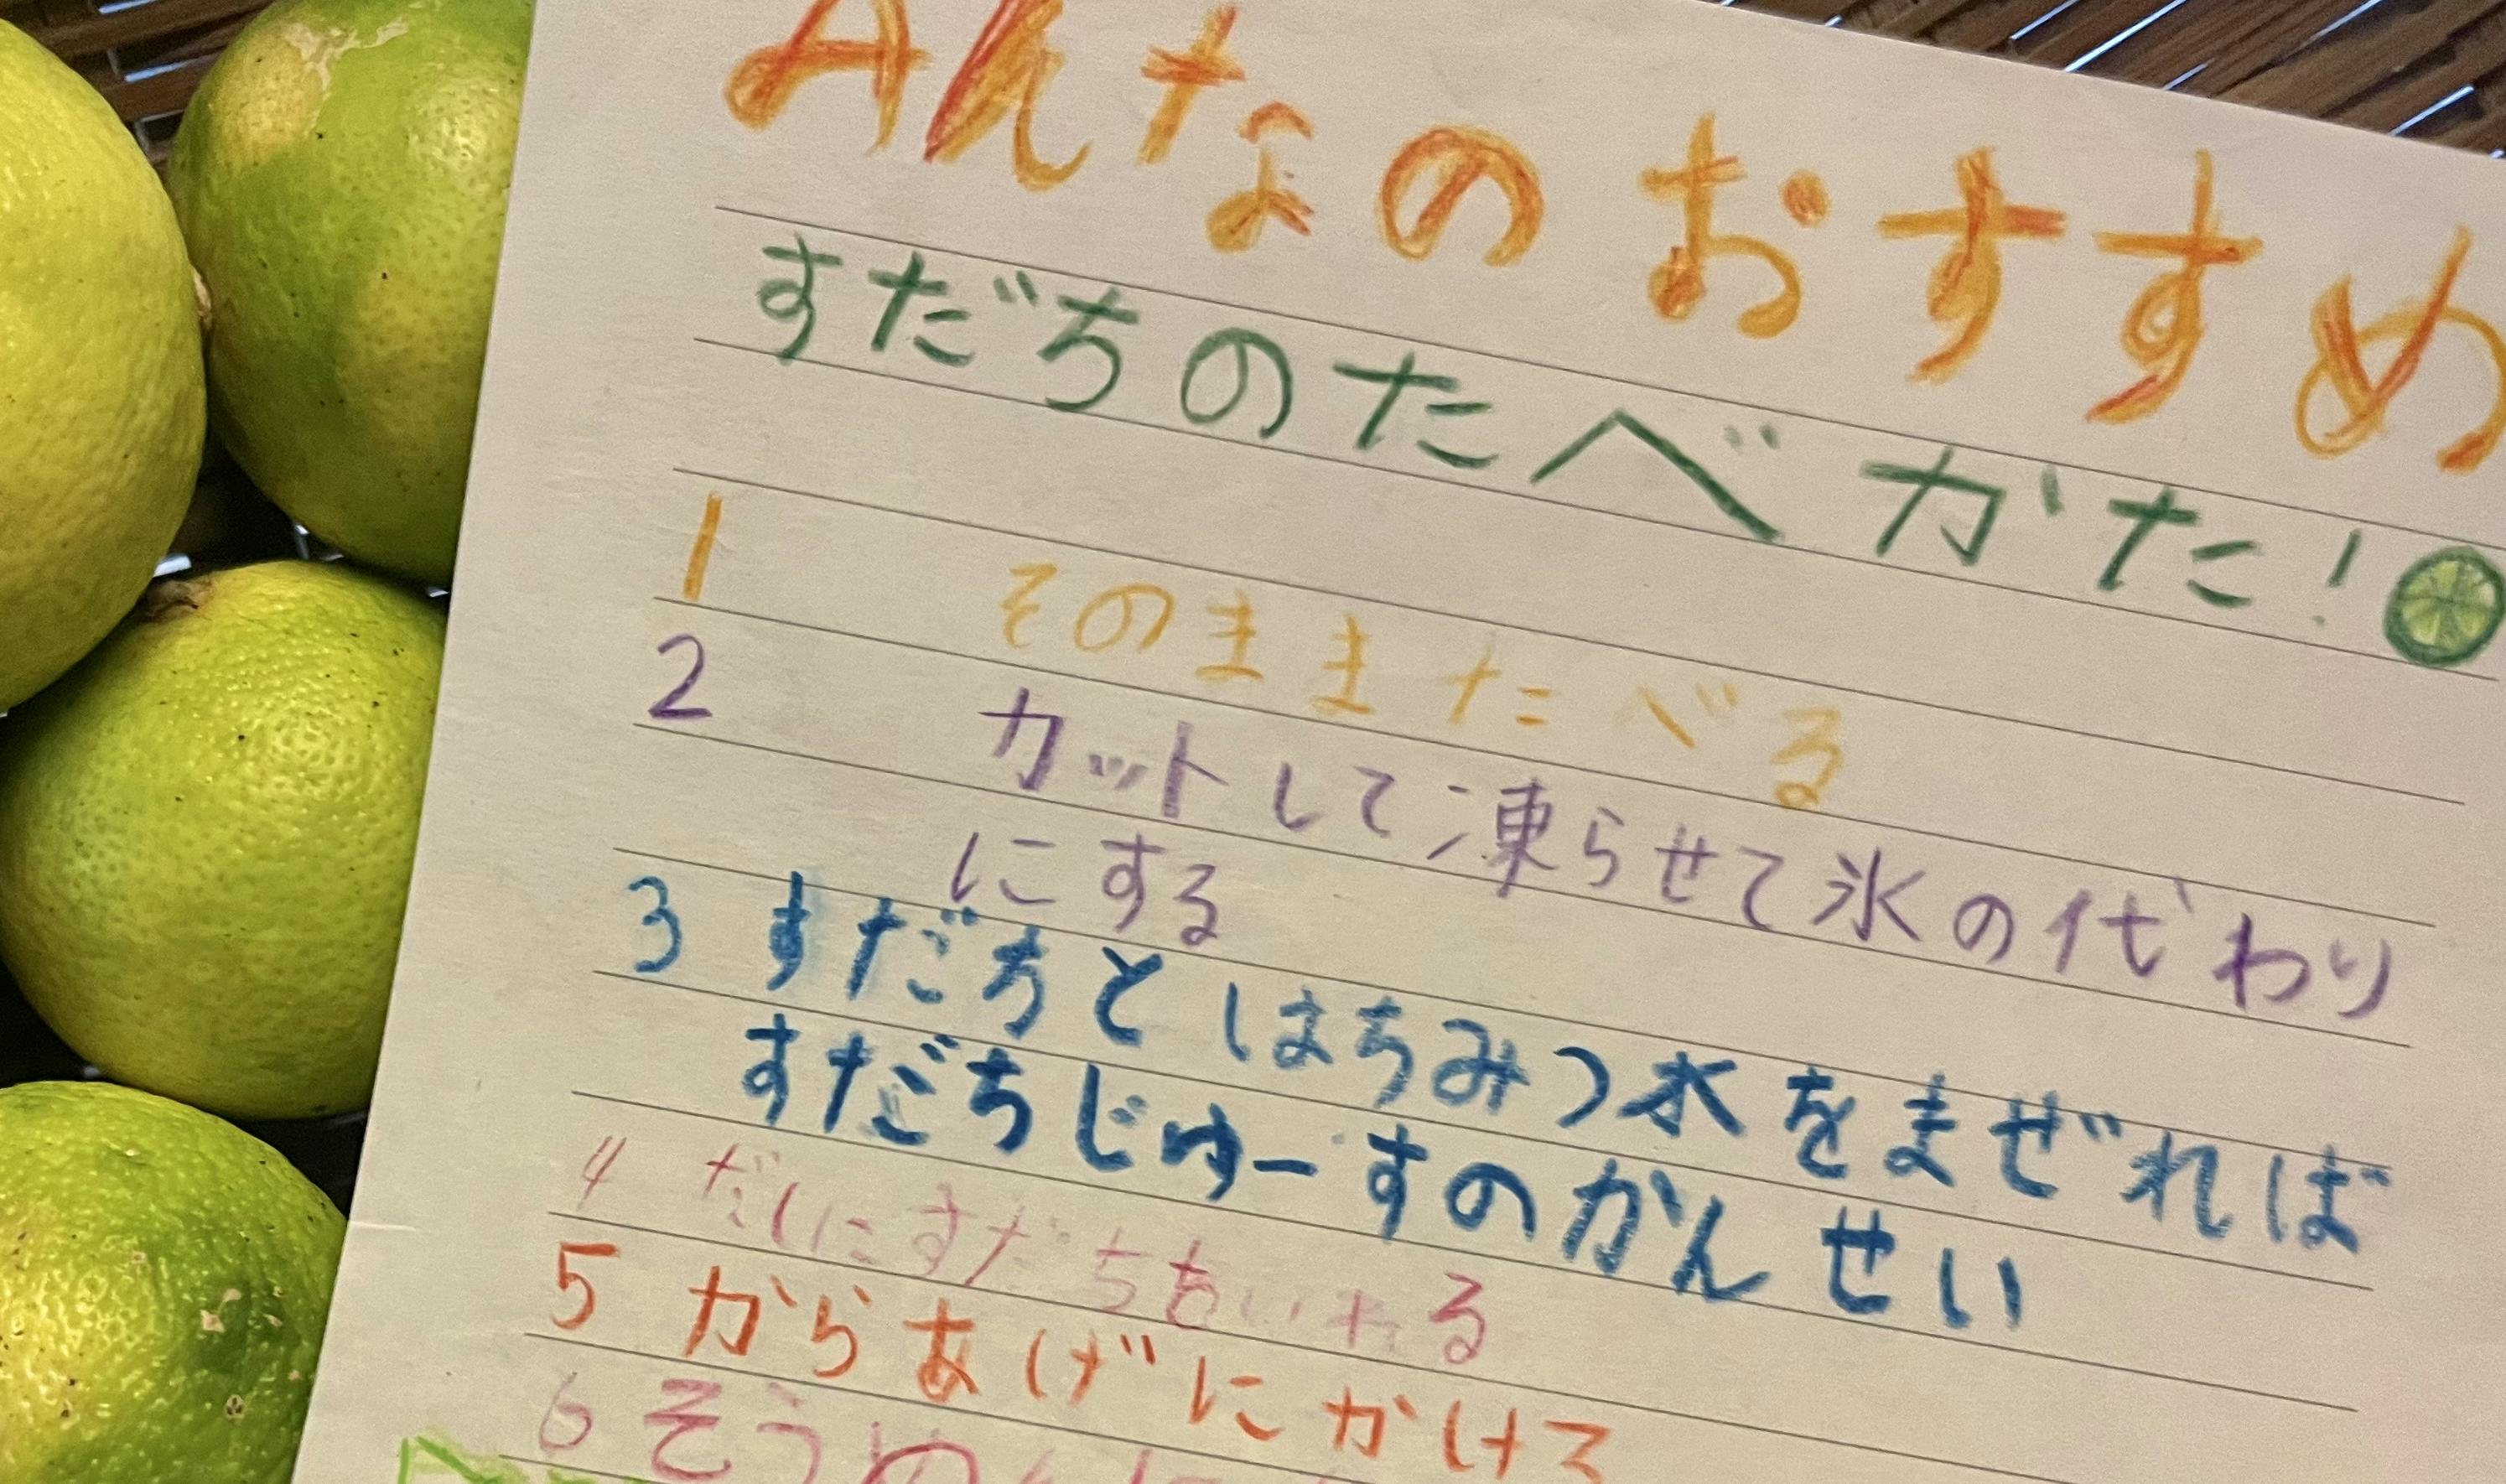 Aんなのおすすめ
すだちのたべかた!
1 そのままたべる
2 カットして凍らせて氷の代わり
にする
3 すだちとはちみつ水をまぜれば
すだちじゅーすのかんせい
4 だしにすだちをいれる
5 からあげにかける
6 そうめんに